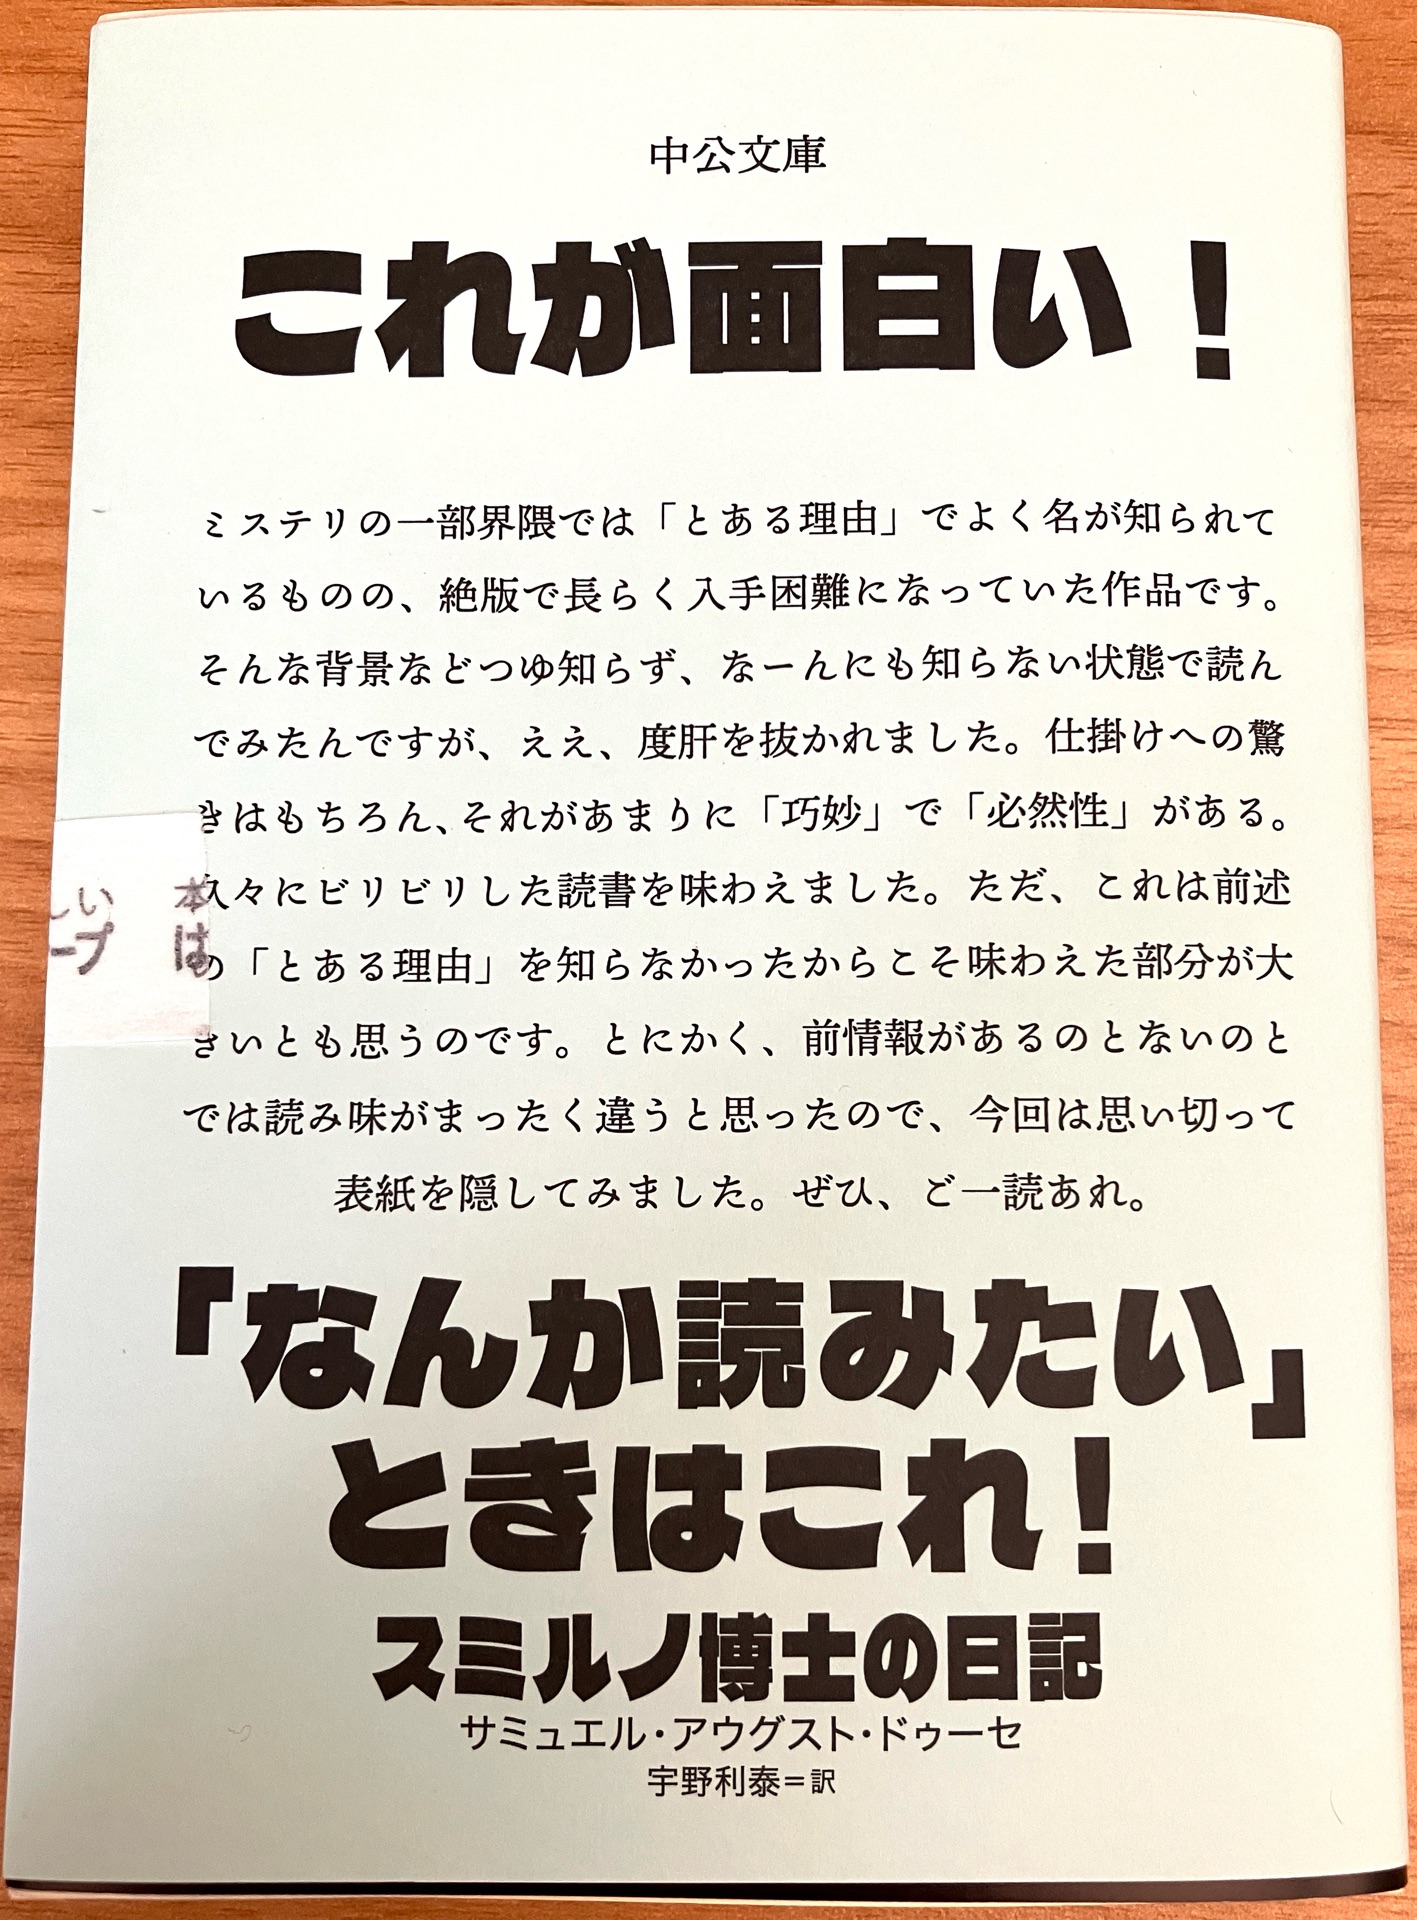 中公文庫
これが面白い！
ミステリの一部界隈では「とある理由」でよく名が知られて
いるものの、絶版で長らく入手困難になっていた作品です。
そんな背景などつゆ知らず、なーんにも知らない状態で読ん
でみたんですが、ええ、度肝を抜かれました。仕掛けへの驚
きはもちろん、それがあまりに「巧妙」で「必然性」がある。
久々にビリビリした読書を味わえました。ただ、これは前述
の「とある理由」を知らなかったからこそ味わえた部分が大
きいとも思うのです。とにかく、前情報があるのとないのと
では読み味がまったく違うと思ったので、今回は思い切って
表紙を隠してみました。ぜひ、ご一読あれ。
しい 本
ープ は
「なんか読みたい」
ときはこれ！
スミルノ博士の日記
サミュエル・アウグスト・ドゥーセ
宇野利泰＝訳